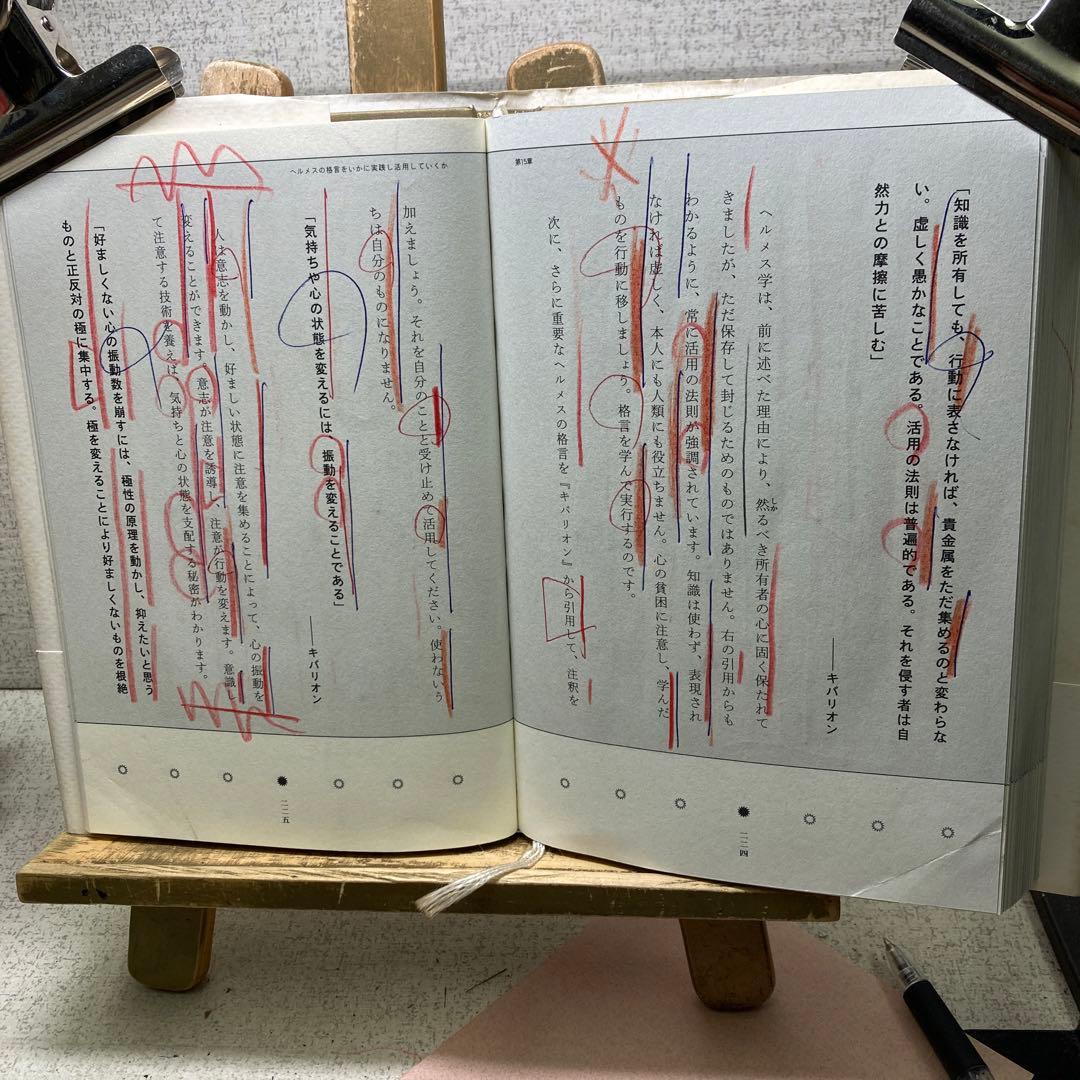 第15章
「知識を所有しても、行動に表さなければ、貴金属をただ集めるのと変わらな
い。虚しく愚かなことである。活用の法則は普遍的である。それを侵す者は自
然力との摩擦に苦しむ」
――キバリオン
ヘルメス学は、前に述べた理由により、然るべき所有者の心に固く保たれて
きましたが、ただ保存して封じるためのものではありません。右の引用からも
わかるように、常に活用の法則が強調されています。知識は使わず、表現され
なければ虚しく、本人にも人類にも役立ちません。心の貧困に注意し、学んだ
ものを行動に移しましょう。格言を学んで実行するのです。
次に、さらに重要なヘルメスの格言を『キバリオン』から引用して、注釈を
二二四
ヘルメスの格言をいかに実践し活用していくか
加えましょう。それを自分のことと受け止めて活用してください。使わないう
ちは自分のものになりません。
「気持ちや心の状態を変えるには、振動を変えることである」
――キバリオン
人は意志を動かし、好ましい状態に注意を集めることによって、心の振動を
変えることができます。意志が注意を誘導し、注意が行動を変えます。意識し
て注意する技術を養えば、気持ちと心の状態を支配する秘密がわかります。
「好ましくない心の振動数を崩すには、極性の原理を動かし、抑えたいと思う
ものと正反対の極に集中する。極を変えることにより好ましくないものを根絶
二二五